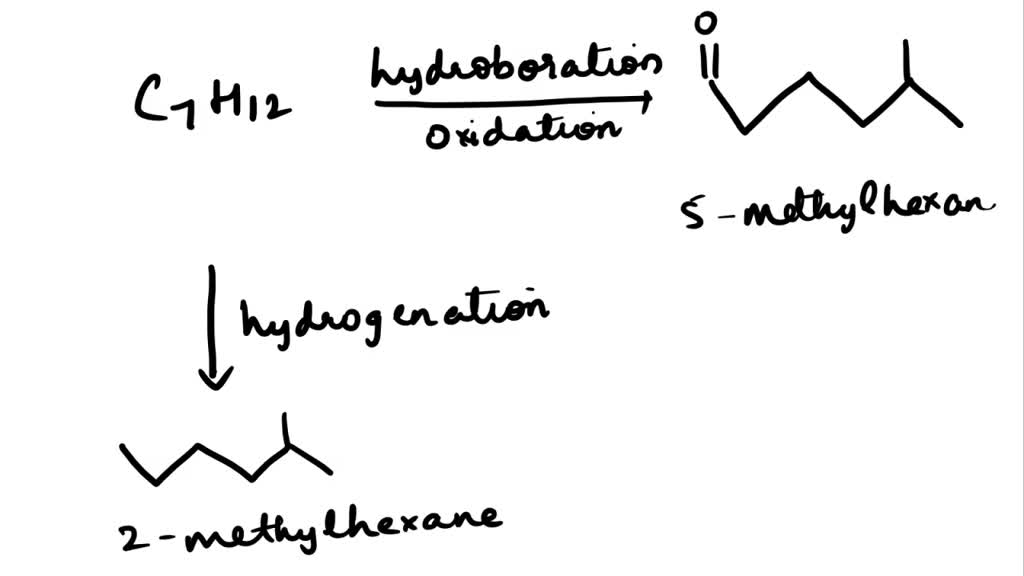 O
C7H12
hydroboration
oxidation
5-methylhexan
hydrogenation
2-methylhexane